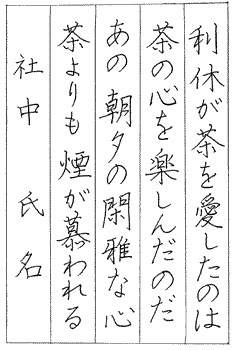 利休が茶を愛したのは
茶の心を楽しんだのだ
あの朝夕の閑雅な心
茶よりも煙が慕われる
社中 氏名